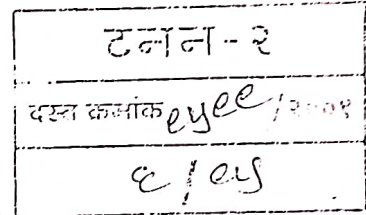 टनन-२
दस्त क्रमांक ९५९९/२००९
६/९५